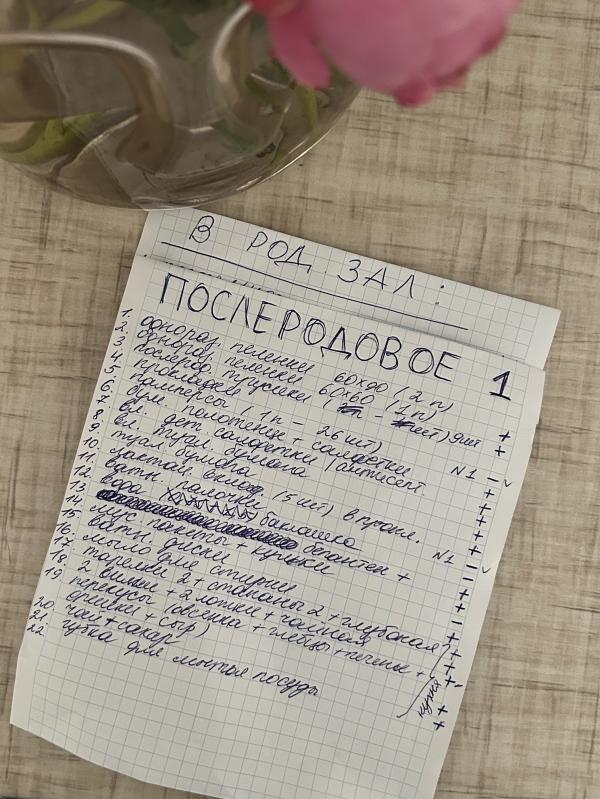 В РОД. ЗАЛ:
ПОСЛЕРОДОВОЕ 1
1. однораз. пеленки 60х90 (2 п) +
2. однораз. пеленки 60х60 (1 п) +
3. послерод. трусики ( шт) 9шт
4. прокладки N1 –
5. памперсы (1 п – 26 шт) +
6. бум. полотенца + салфетки +
7. вл. дет. салфетки / антисепт. +
8. вл. туал. бумага +
9. туал. бумага +
10. лактац. вклад. (5 шт) в прокл. N1
11. ватн. палочки
12. вода баклажка
13. бепантен +
14. мус. пакеты + кульки
15. ватн. диски
16. мыло для стирки
17. тарелки 2 + стаканы 2 + глубокая
18. 2 вилки + 2 ложки + чайная
19. перекусы (овсянка + хлебцы + печенье +
сушки + сыр)
20. чай + сахар
21. губка для мытья посуды
22
кухня